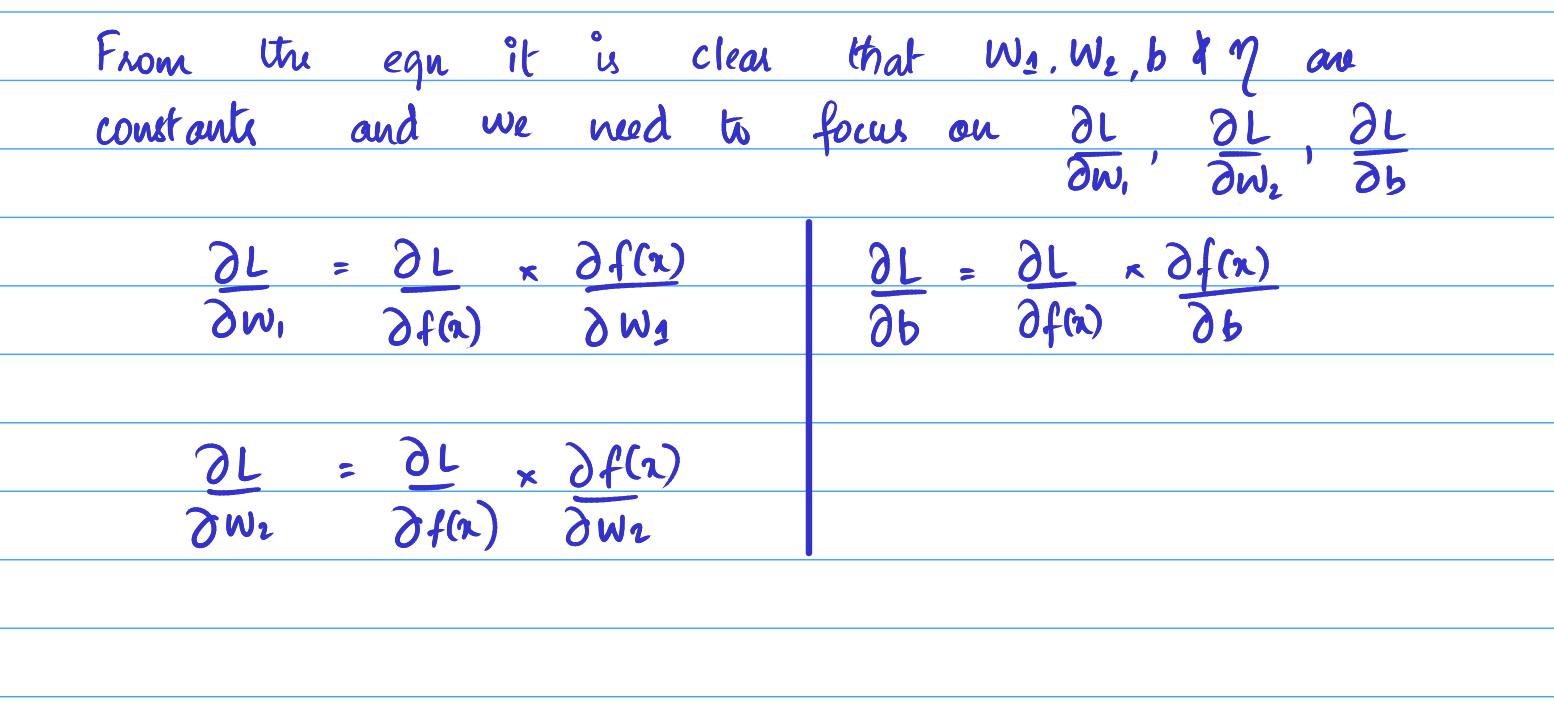 From the eqn it is clear that W₁, W₂, b & η are
constants and we need to focus on ∂L/∂W₁, ∂L/∂W₂, ∂L/∂b
∂L/∂W₁ = ∂L/∂f(x) × ∂f(x)/∂W₁
∂L/∂W₂ = ∂L/∂f(x) × ∂f(x)/∂W₂
∂L/∂b = ∂L/∂f(x) × ∂f(x)/∂b